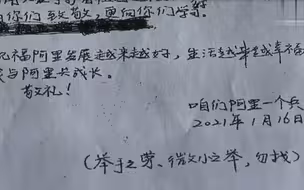 向你们致敬，更向你们学习。
祝福阿里发展越来越好，生活越来越幸福
与阿里共成长。
敬礼！
咱们阿里一个兵
2021年1月16日
（举手之劳、微小之举，勿找）